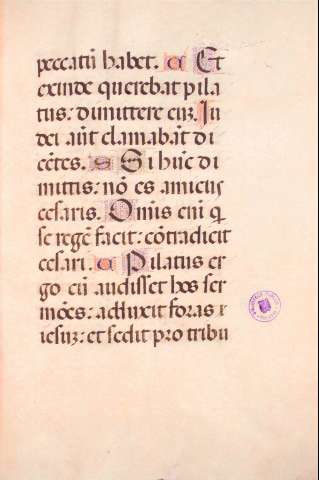 peccatũ habet. a Et
exinde querebat pila
tus: dimittere eũz. Iu
dei aũt clamabãt di
cẽtes. S Si hũc di
mittis: nõ es amicus
cesaris. Omis eni q̃
se regẽ facit: cõtradicit
cesari. a Pilatus er
go cũ audisset hos ser
mões: adduxit foras
iesuz: et sedit pro tribu